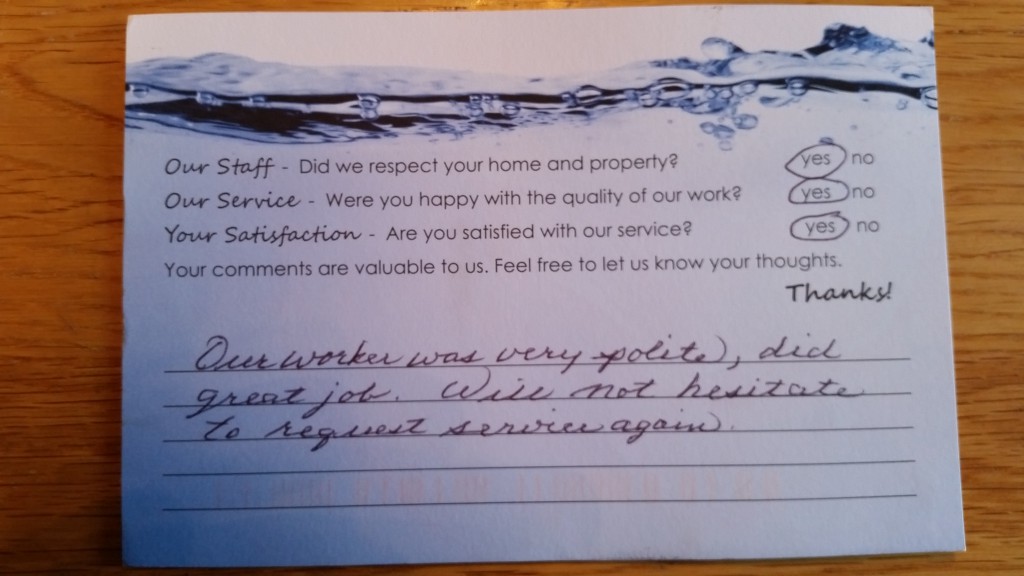 Our Staff - Did we respect your home and property? yes no
Our Service - Were you happy with the quality of our work? yes no
Your Satisfaction - Are you satisfied with our service? yes no
Your comments are valuable to us. Feel free to let us know your thoughts.
Thanks!
Our worker was very polite, did
great job. Will not hesitate
to request service again.